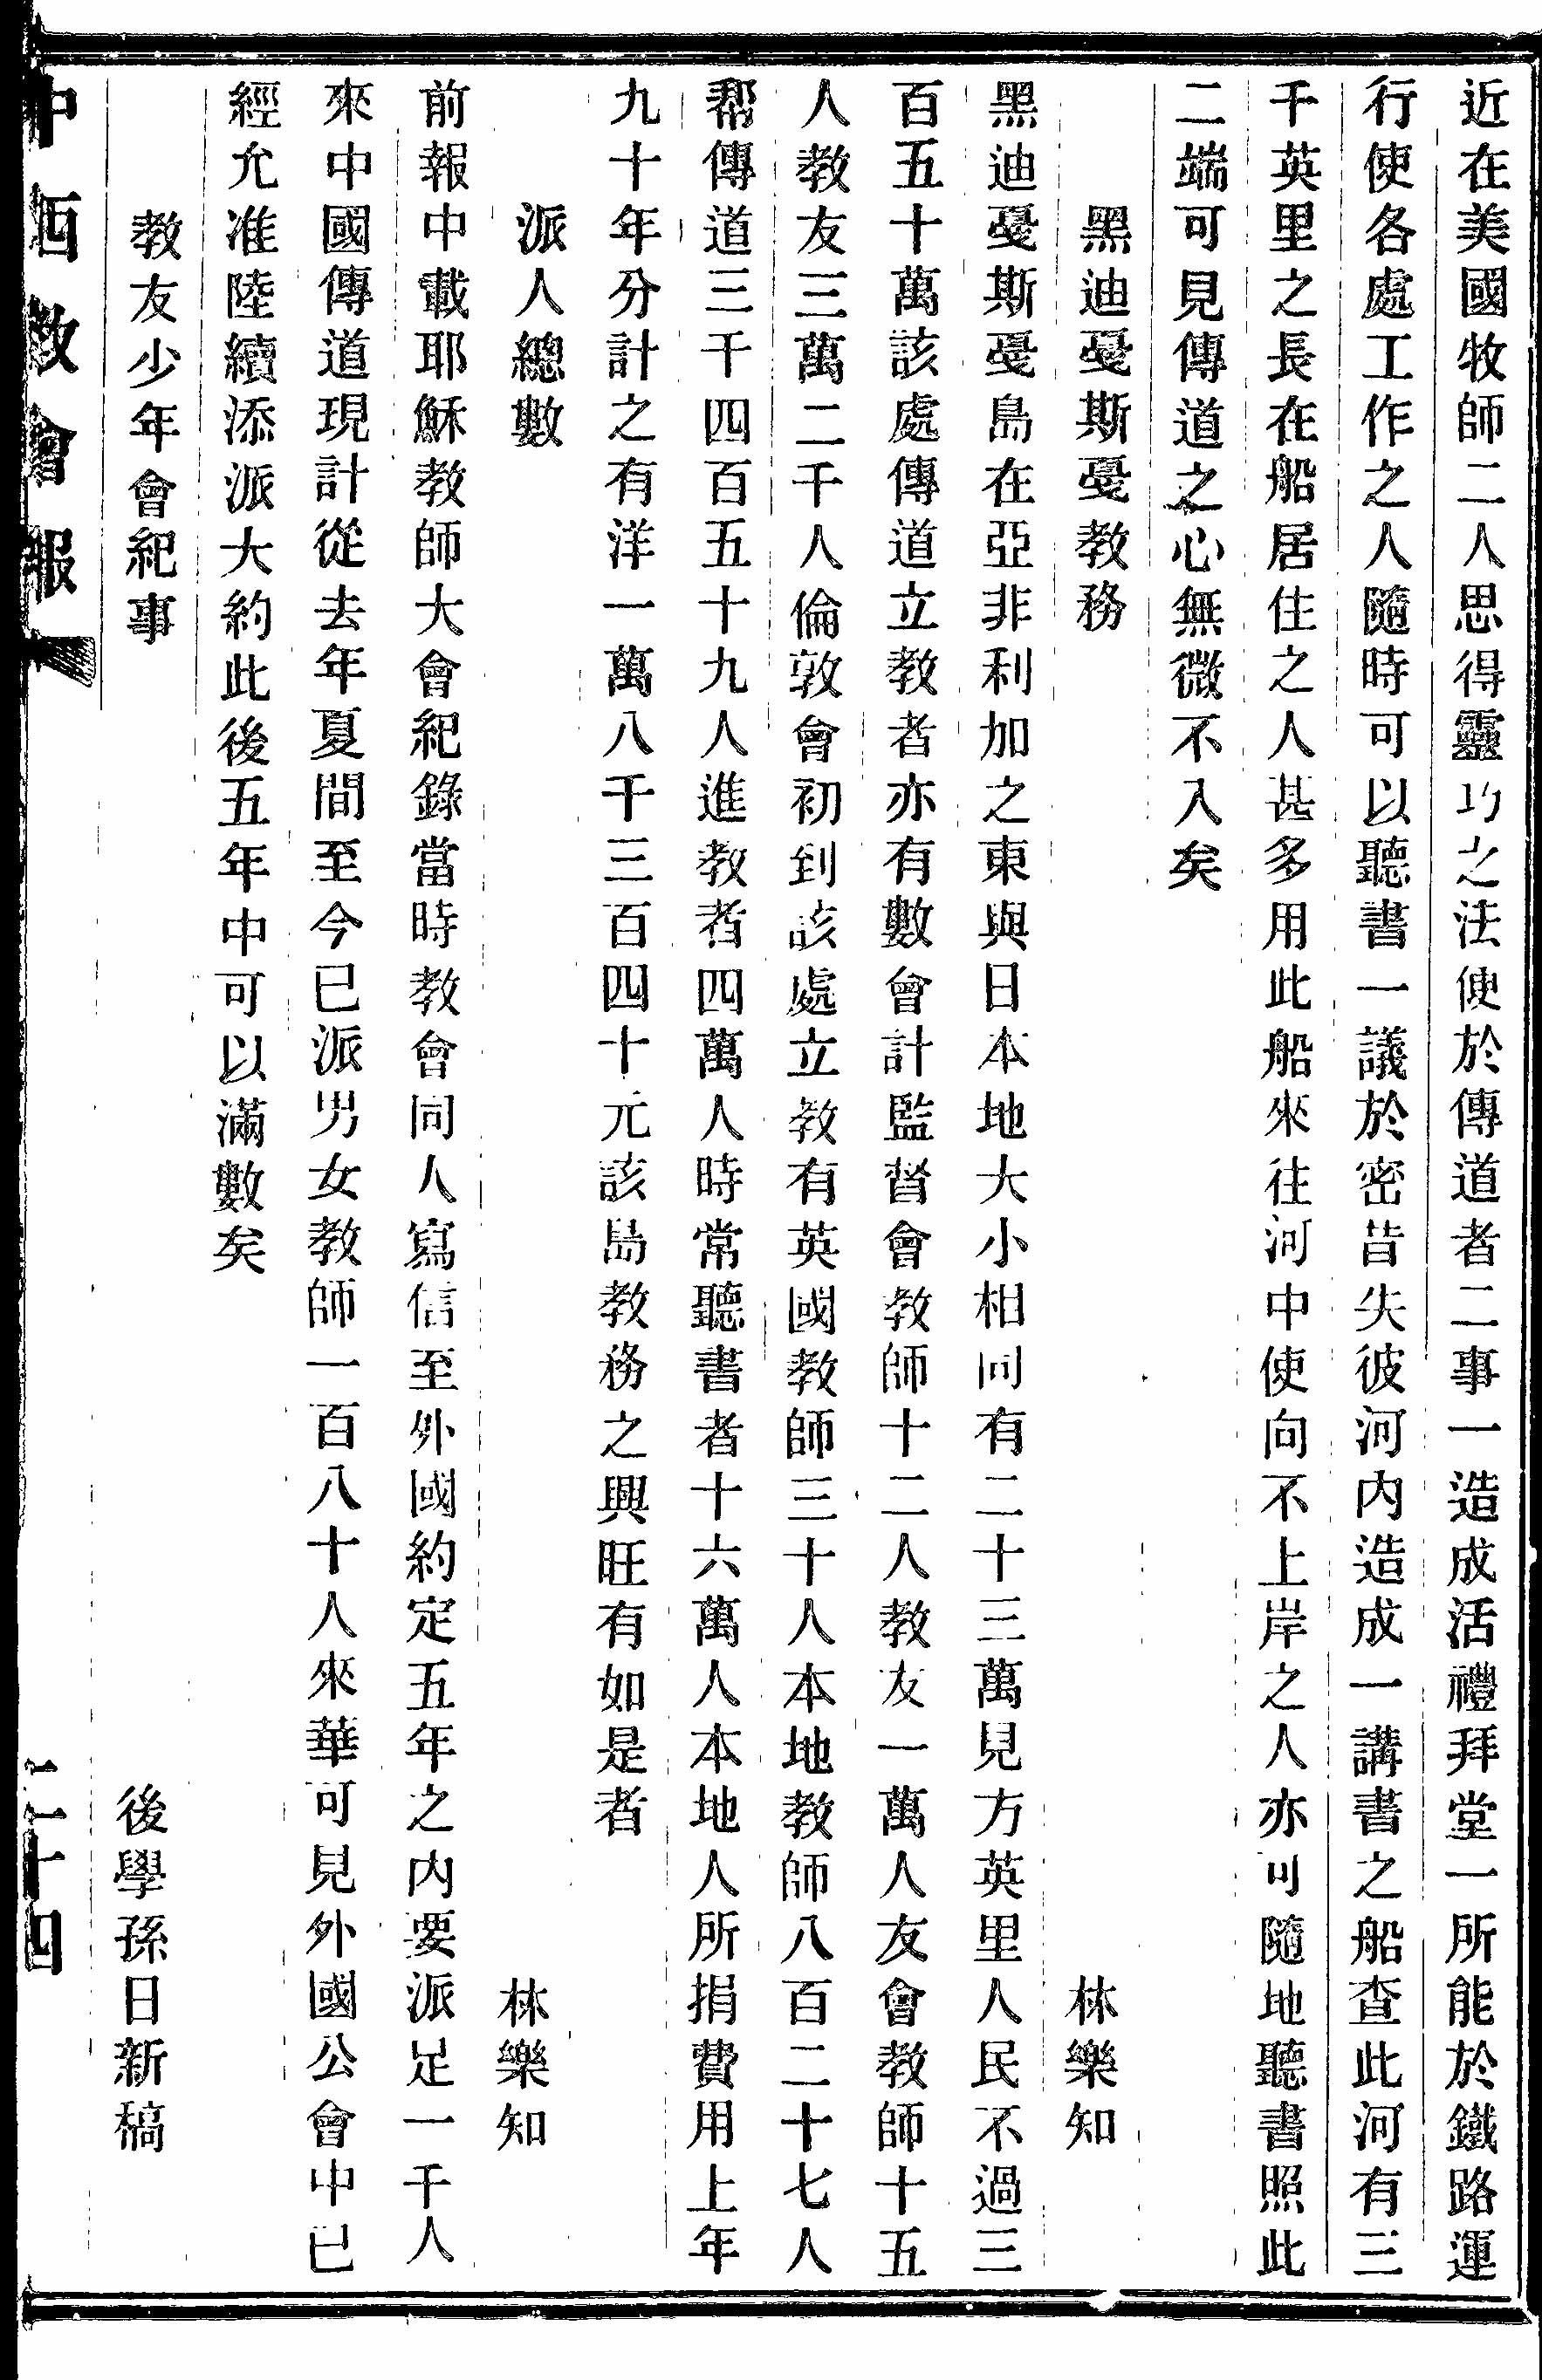 近在美國牧師二人思得靈巧之法便於傳道者二事一造成活禮拜堂一所能於鐵路運
行使各處工作之人隨時可以聽書一議於密昔失彼河內造成一講書之船查此河有三
千英里之長在船居住之人甚多用此船來往河中使向不上岸之人亦可隨地聽書照此
二端可見傳道之心無微不入矣
黑迪戞斯戞教務 林樂知
黑迪戞斯戞島在亞非利加之東與日本地大小相同有二十三萬見方英里人民不過三
百五十萬該處傳道立教者亦有數會計監督會教師十二人教友一萬人友會教師十五
人教友三萬二千人倫敦會初到該處立教有英國教師三十人本地教師八百二十七人
幫傳道三千四百五十九人進教者四萬人時常聽書者十六萬人本地人所捐費用上年
九十年分計之有洋一萬八千三百四十元該島教務之興旺有如是者
派人總數 林樂知
前報中載耶穌教師大會紀錄當時教會同人寫信至外國約定五年之內要派足一千人
來中國傳道現計從去年夏間至今已派男女教師一百八十人來華可見外國公會中已
經允准陸續添派大約此後五年中可以滿數矣
教友少年會紀事 後學孫日新稿
中西教會報 二十四